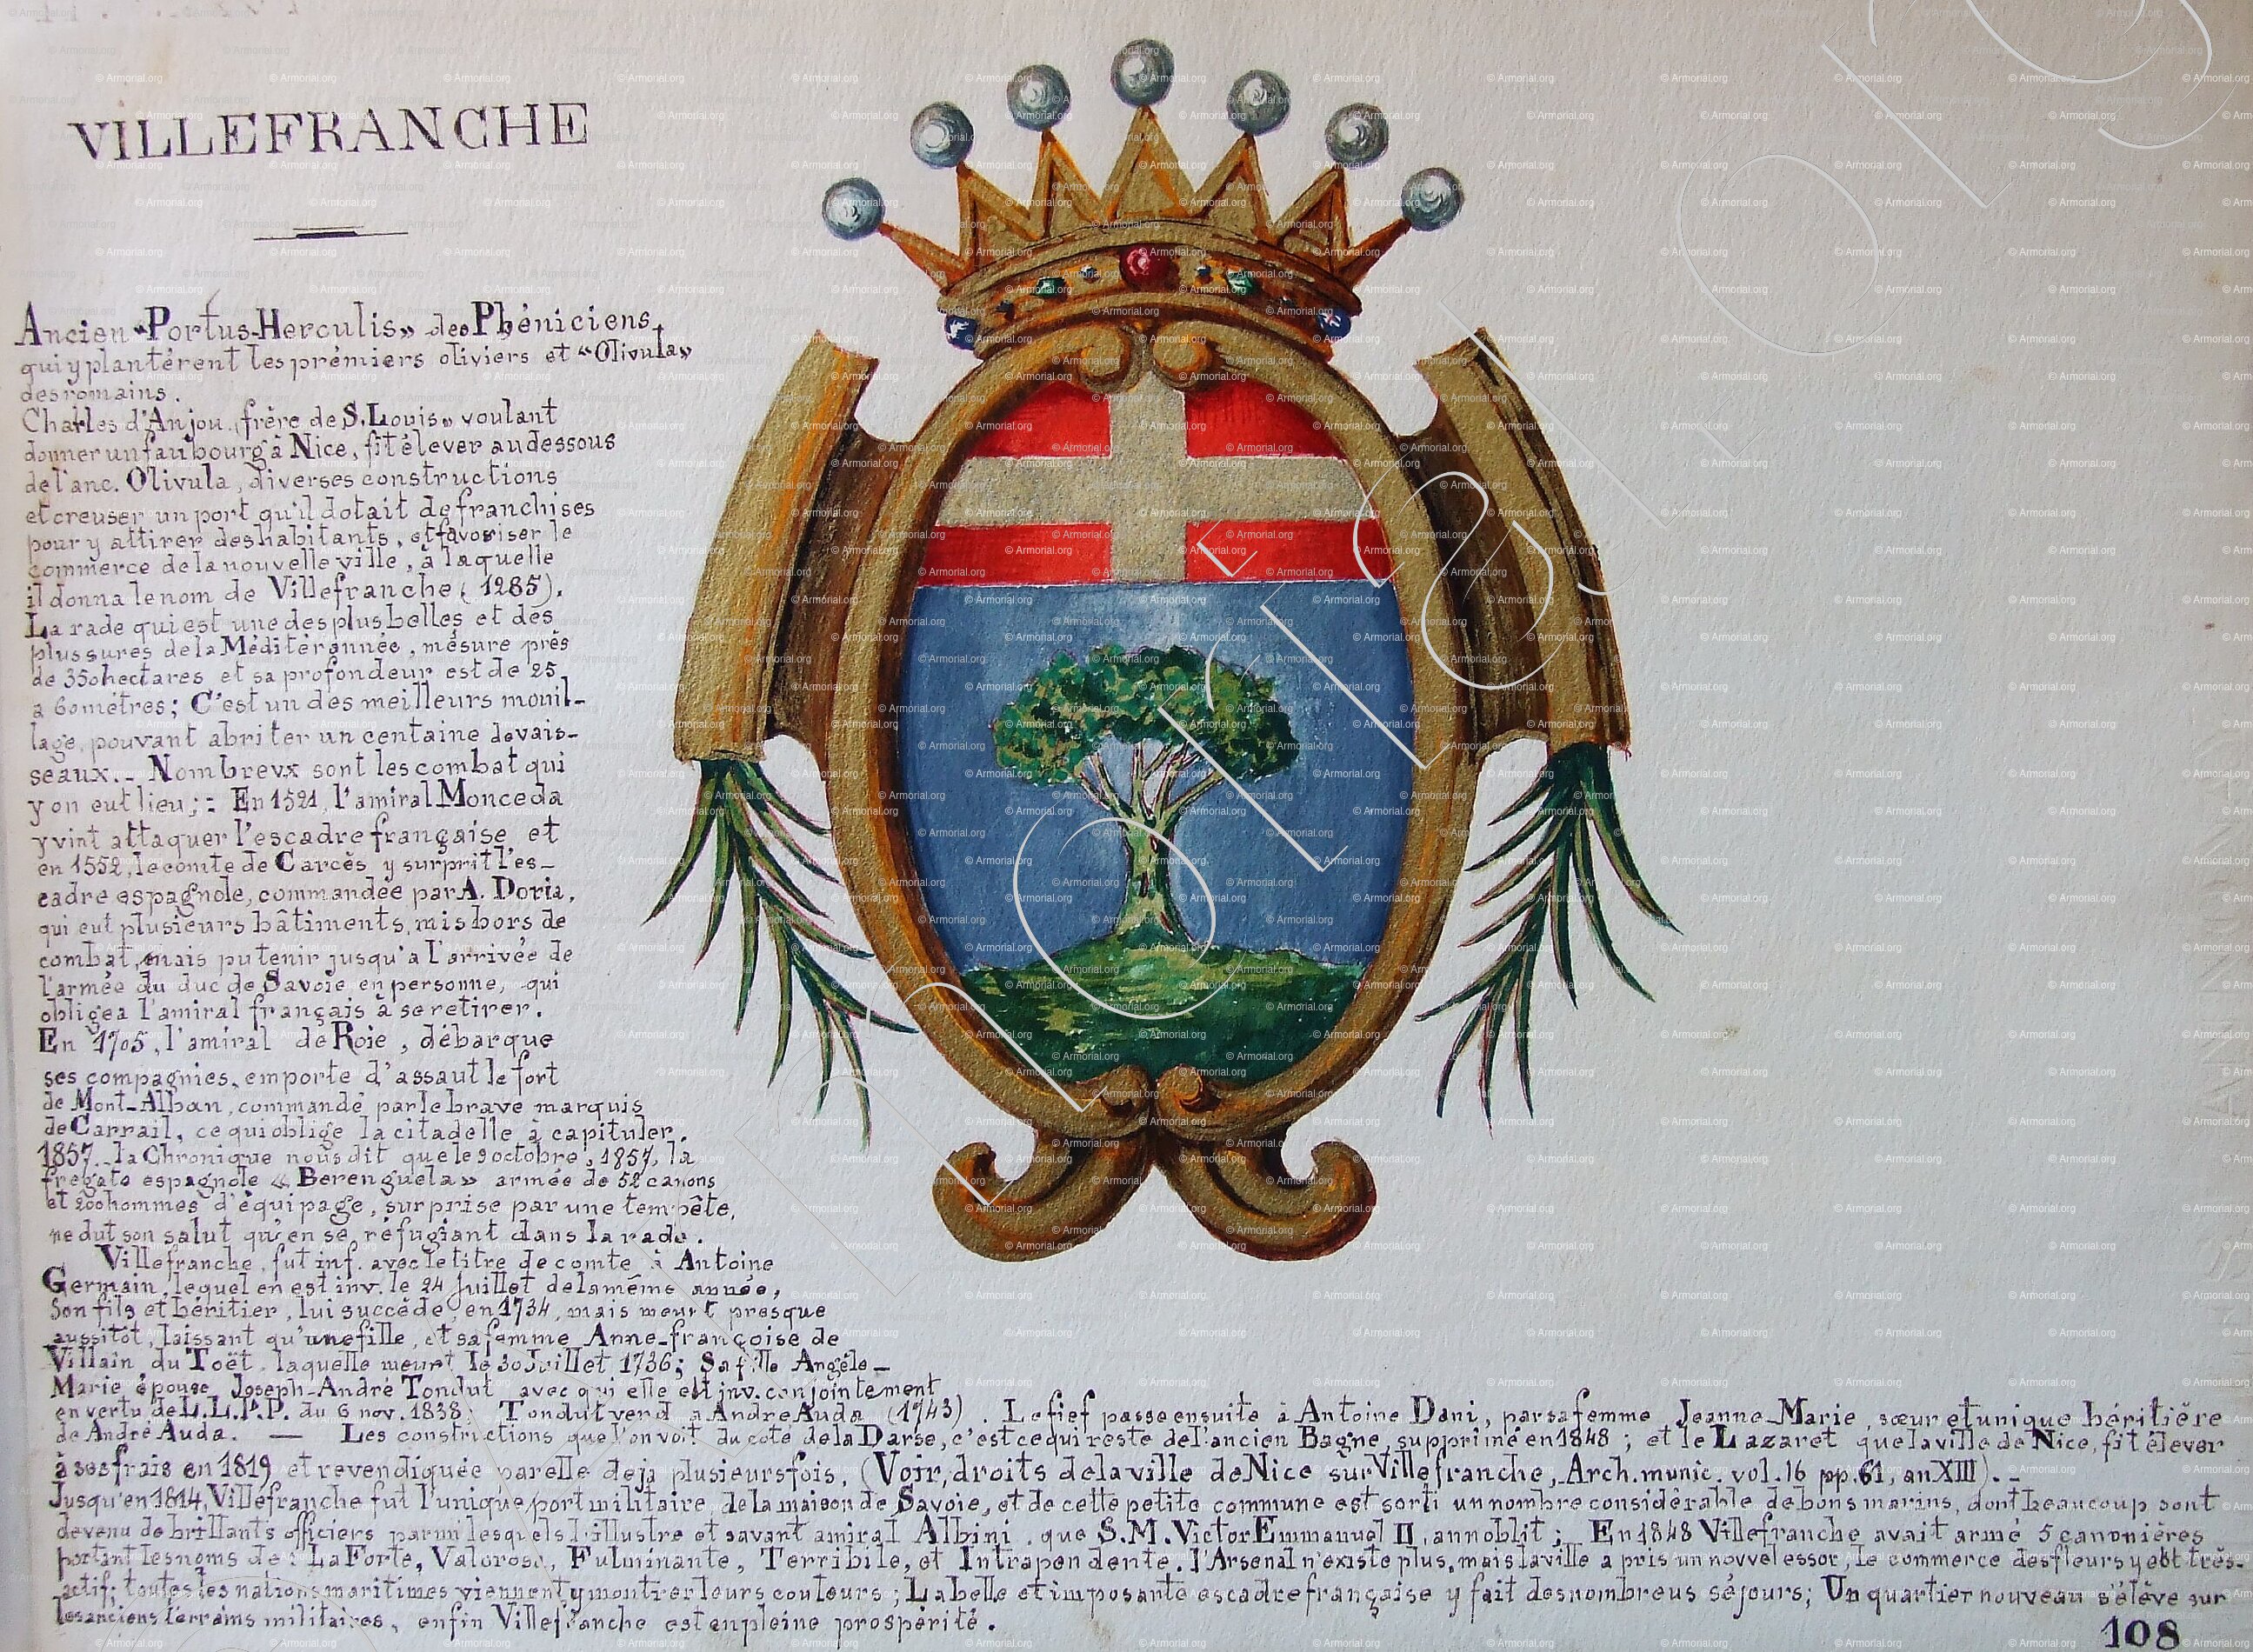 VILLEFRANCHE
Ancien «Portus-Herculis» des Phéniciens,
qui y plantèrent les prémiers oliviers et «Olivula»
des romains.
Charles d'Anjou, frère de S. Louis» voulant
donner un faubourg à Nice, fit élever au dessous
de l'anc. Olivula, diverses constructions
et creuser un port qu'il dotait de franchises
pour y attirer des habitants, et favoriser le
commerce de la nouvelle ville, à laquelle
il donna le nom de Villefranche (1285).
La rade qui est une des plus belles et des
plus sures de la Méditérannée, mésure près
de 350 hectares et sa profondeur est de 25
a 60 mètres; C'est un des meilleurs mouil-
lage, pouvant abriter un centaine de vais-
seaux.- Nombreux sont les combat qui
y on eut lieu;: En 1521, l'amiral Monceda
y vint attaquer l'escadre française et
en 1552, le comte de Carcès y surprit l'es-
cadre espagnole, commandée par A. Doria,
qui eut plusieurs bâtiments, mis hors de
combat, mais pu tenir jusqu'a l'arrivée de
l'armée du duc de Savoie en personne, qui
obligea l'amiral français à se retirer.
En 1705, l'amiral de Roie, débarque
ses compagnies, emporte d'assaut le fort
de Mont-Alban, commandé par le brave marquis
de Carrail, ce qui oblige la citadelle à capituler.
1857. la Chronique nous dit que le 9 octobre, 1857, la
fregate espagnole «Berenguela» armée de 52 canons
et 200 hommes d'équipage, surprise par une tempête,
ne dut son salut qu'en se réfugiant dans la rade.
Villefranche, fut inf. avec le titre de comte à Antoine
Germain, lequel en est inv. le 24 Juillet de la même année,
Son fils et héritier, lui succède, en 1734, mais meurt presque
aussitôt, laissant qu'une fille, et sa femme Anne-françoise de
Villain du Toët laquelle meurt le 30 Juillet 1736; Sa fille Angèle-
Marie épouse Joseph-André Tondut avec qui elle est inv. conjointement
en vertu de L.L.P.P. du 6 nov. 1838; Tondut vend a André Auda (1743). Le fief passe ensuite à Antoine Dani, par sa femme Jeanne-Marie, sœur et unique héritière
de André Auda. — Les constructions que l'on voit du coté de la Darse, c'est ce qui reste de l'ancien Bagne, supprimé en 1848; et le Lazaret que la ville de Nice, fit élever
à ses frais en 1819 et revendiquée par elle deja plusieurs fois, (Voir, droits de la ville de Nice sur Villefranche, Arch. munic. vol. 16 pp. 61, an XIII).-
Jusqu'en 1814, Villefranche fut l'unique port militaire de la maison de Savoie, et de cette petite commune est sorti un nombre considérable de bons marins, dont beaucoup sont
devenu de brillants officiers parmi lesquels l'illustre et savant amiral Albini que S.M. Victor Emmanuel II, annoblit; En 1848 Villefranche avait armé 5 canonières
portant les noms de La Forte, Valorosa, Fulminante, Terribile, et Intrapendente. l'Arsenal n'existe plus, mais la ville a pris un nouvel essor, le commerce des fleurs y est très-
actif; toutes les nations maritimes viennent y montrer leurs couleurs; La belle et imposante escadre française y fait des nombreus séjours; Un quartier nouveau s'élève sur
les anciens terrains militaires, enfin Villefranche est en pleine prospérité.
108
© Armorial.org